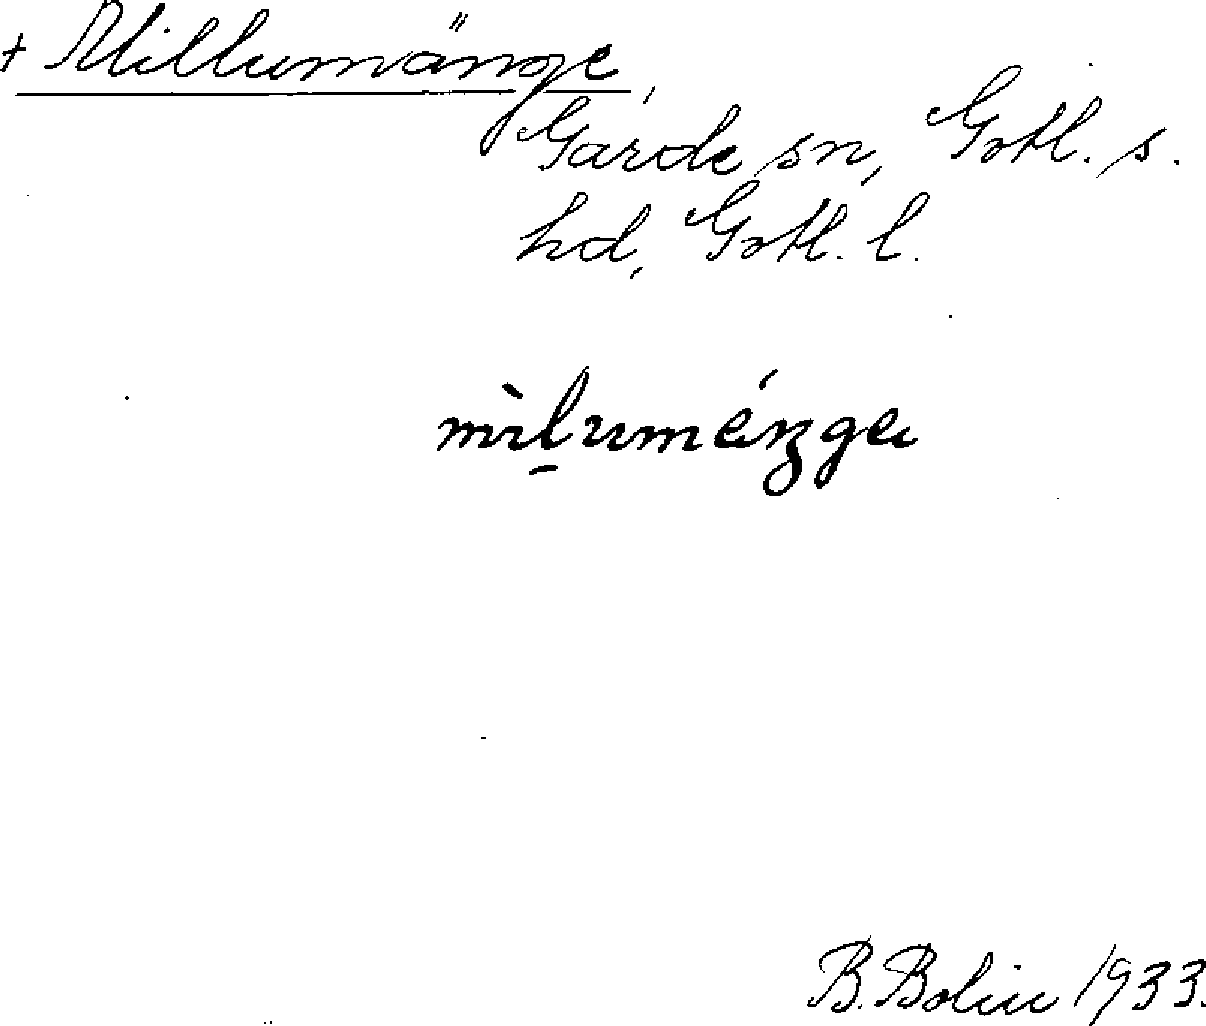 + Millumänge,
Garde sn, Gotl. s.
hd, Gotl. l.
mìḻuméŋga
B. Bolin 1933.